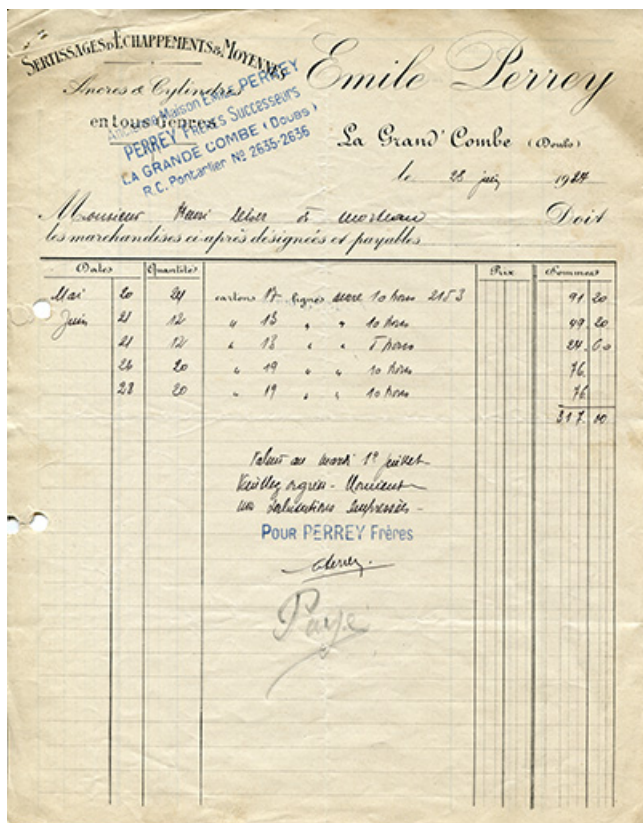 SERTISSAGES D'ÉCHAPPEMENTS & MOYENNES
Ancres & Cylindres
en tous Genres
Emile Perrey
Ancienne Maison Emile PERREY
PERREY FRÈRES Successeurs
LA GRANDE COMBE (DOUBS)
R.C. Pontarlier Nº 2635-2636
La Grand' Combe (Doubs)
le 28 juin 1924
Monsieur Henri à Morteau Doit
les marchandises ci-après désignées et payables
Dates Quantités Prix Sommes
Mai 20 24 cartons 17 lignes 10 trous 2153 91 20
Juin 21 12 " 13 " " 10 trous 49 20
21 12 " 13 " " trous 24 60
26 20 " 19 " " 10 trous 76
28 20 " 19 " " 10 trous 76
317 00
au mardi 1er juillet
Veuillez agréer - Monsieur
nos salutations empressées -
POUR PERREY Frères
Perrey
Payé